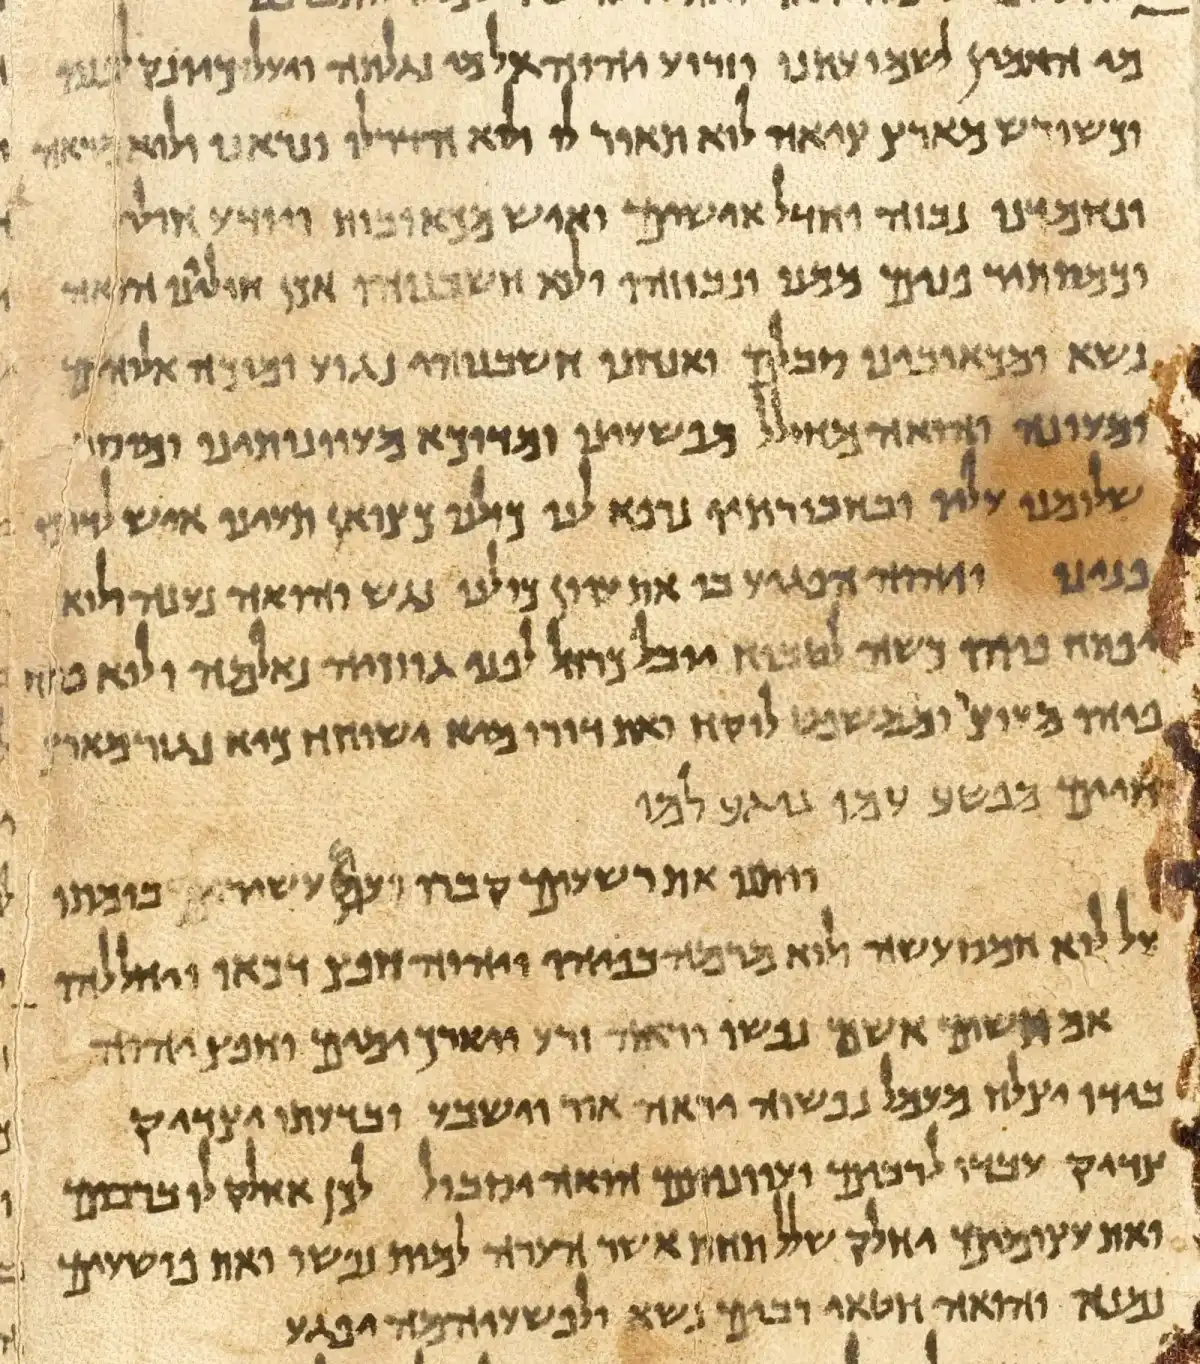 מי האמין לשמועתנו וזרוע יהוה אל מי נגלתה ויעל כיונק לפניו
וכשורש מארץ ציאה לוא תאור לו ולוא הדר לו ונראנו ולוא מראה
ונחמדנו נבזה וחדל אישים ואיש מכאובות ויודע חולי
וכמסתיר פנים ממנו ונבוזהו ולוא חשבנוהו אכן חוליינו הואה
נשא ומכאובינו סבלם ואנחנו חשבנוהו נגוע ומוכה אלוהים
ומעונה והואה מחולל מפשעינו ומדוכא מעוונותינו ומוסר
שלומנו עליו ובחבורתיו נרפא לנו כולנו כצואן תעינו איש לדרכו
פנינו ויהוה הפגיע בו את עוון כולנו נגש והואה נענה ולוא
יפתח פיהו כשה לטבוח יובל כרחל לפני גוזזיה נאלמה ולוא פתח
פיהו מעוצר וממשפט לוקח ואת דורו מיא ישוחח כיא נגזר מארץ
חיים מפשע עמו נוגע למו
ויתנו את רשעים קברו ועם עשיר בומתו
על לוא חמס עשה ולוא מרמה בפיהו ויהוה חפץ דכאו ויחללהו
אם תשים אשם נפשו יראה זרע ויארך ימים וחפץ יהוה
בידו יצלח מעמל נפשוה יראה אור וישבע ובדעתו יצדיק
צדיק עבדו לרבים ועוונותם הואה יסבול לכן אחלק לו ברבים
ואת עצומים יחלק שלל תחת אשר הערה למות נפשו ואת פושעים
נמנא והואה חטאי רבים נשא ולפשעיהמה יפגע